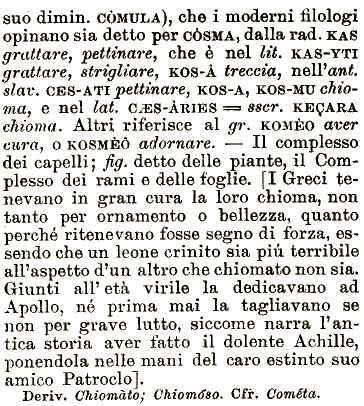 suo dimin. CÒMULA), che i moderni filologi
opinano sia detto per CÒSMA, dalla rad. KAS
grattare, pettinare, che è nel lit. KAS-YTI
grattare, strigliare, KOS-À treccia, nell'ant.
slav. CES-ATI pettinare, KOS-A, KOS-MU chio-
ma, e nel lat. CÆS-ÀRIES = sscr. KEÇARA
chioma. Altri riferisce al gr. KOMÈO aver
cura, o KOSMÈÔ adornare. — Il complesso
dei capelli; fig. detto delle piante, il Com-
plesso dei rami e delle foglie. [I Greci te-
nevano in gran cura la loro chioma, non
tanto per ornamento o bellezza, quanto
perché ritenevano fosse segno di forza, es-
sendo che un leone crinito sia piú terribile
all'aspetto d'un altro che chiomato non sia.
Giunti all'età virile la dedicavano ad
Apollo, né prima mai la tagliavano se
non per grave lutto, siccome narra l'an-
tica storia aver fatto il dolente Achille,
ponendola nelle mani del caro estinto suo
amico Patroclo].
Deriv. Chiomàto; Chiomóso. Cfr. Cométa.